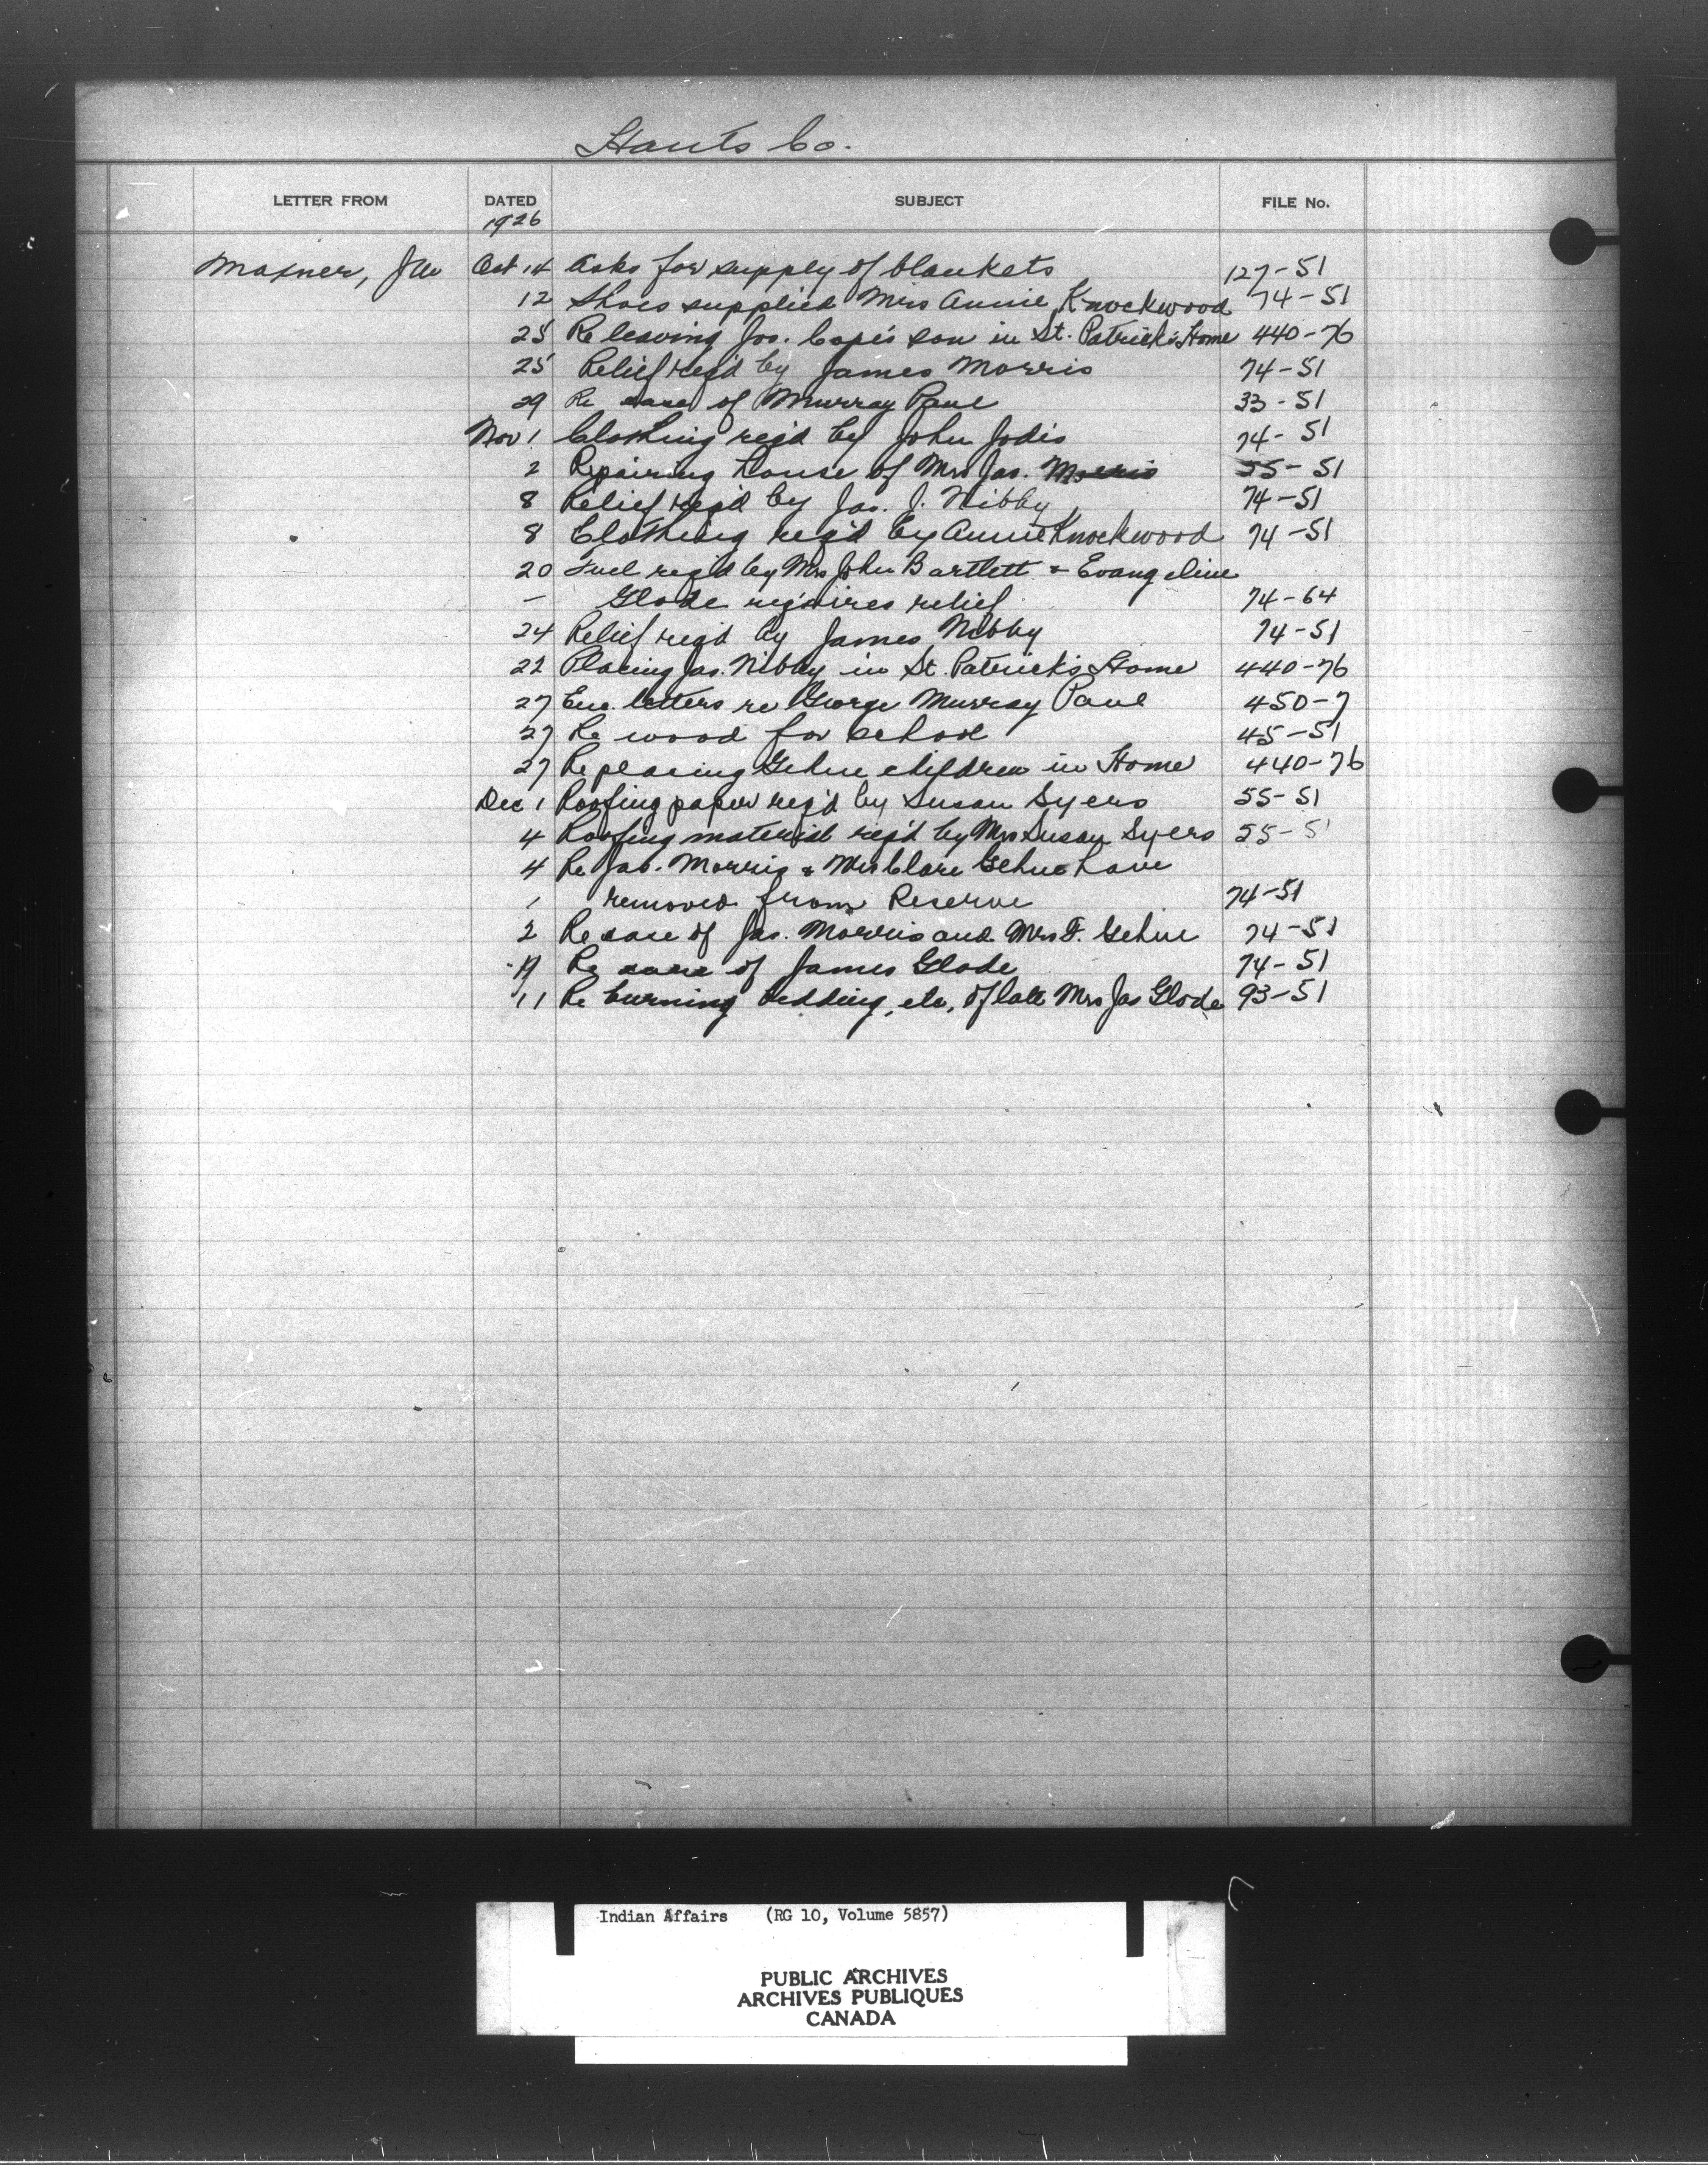 Hants Co.
LETTER FROM DATED SUBJECT FILE No.
1926
Maxner, JW Oct 14 Asks for supply of blankets 127-51
12 Shoes supplied Mrs Annie Knockwood 74-51
25 Re leaving Jos. Cope's son in St. Patrick's Home 440-76
25 Relief req'd by James Morris 74-51
29 Re case of Murray Paul 33-51
Nov 1 Clothing req'd by John Jodis 74-51
2 Repairing house of Mrs Jas. Morris 55-51
8 Relief req'd by Jas. J. Nibby 74-51
8 Clothing req'd by Annie Knockwood 74-51
20 Fuel req'd by Mrs John Bartlett & Evangeline
— Glode requires relief 74-64
24 Relief req'd by James Nibby 74-51
22 Placing Jas. Nibby in St. Patrick's Home 440-76
27 Enc. letters re George Murray Paul 450-7
27 Re wood for school 45-51
27 Re placing Gehue children in Home 440-76
Dec 1 Roofing paper req'd by Susan Syers 55-51
4 Roofing material req'd by Mrs Susan Syers 55-51
4 Re Jas. Morris & Mrs Clare Gehue have
1 removed from Reserve 74-51
2 Re case of Jas. Morris and Mrs F. Gehue 74-51
Re case of James Glode 74-51
11 Re burning bedding, etc, of late Mrs Jas Glode 93-51
Indian Affairs (RG 10, Volume 5857)
PUBLIC ARCHIVES
ARCHIVES PUBLIQUES
CANADA